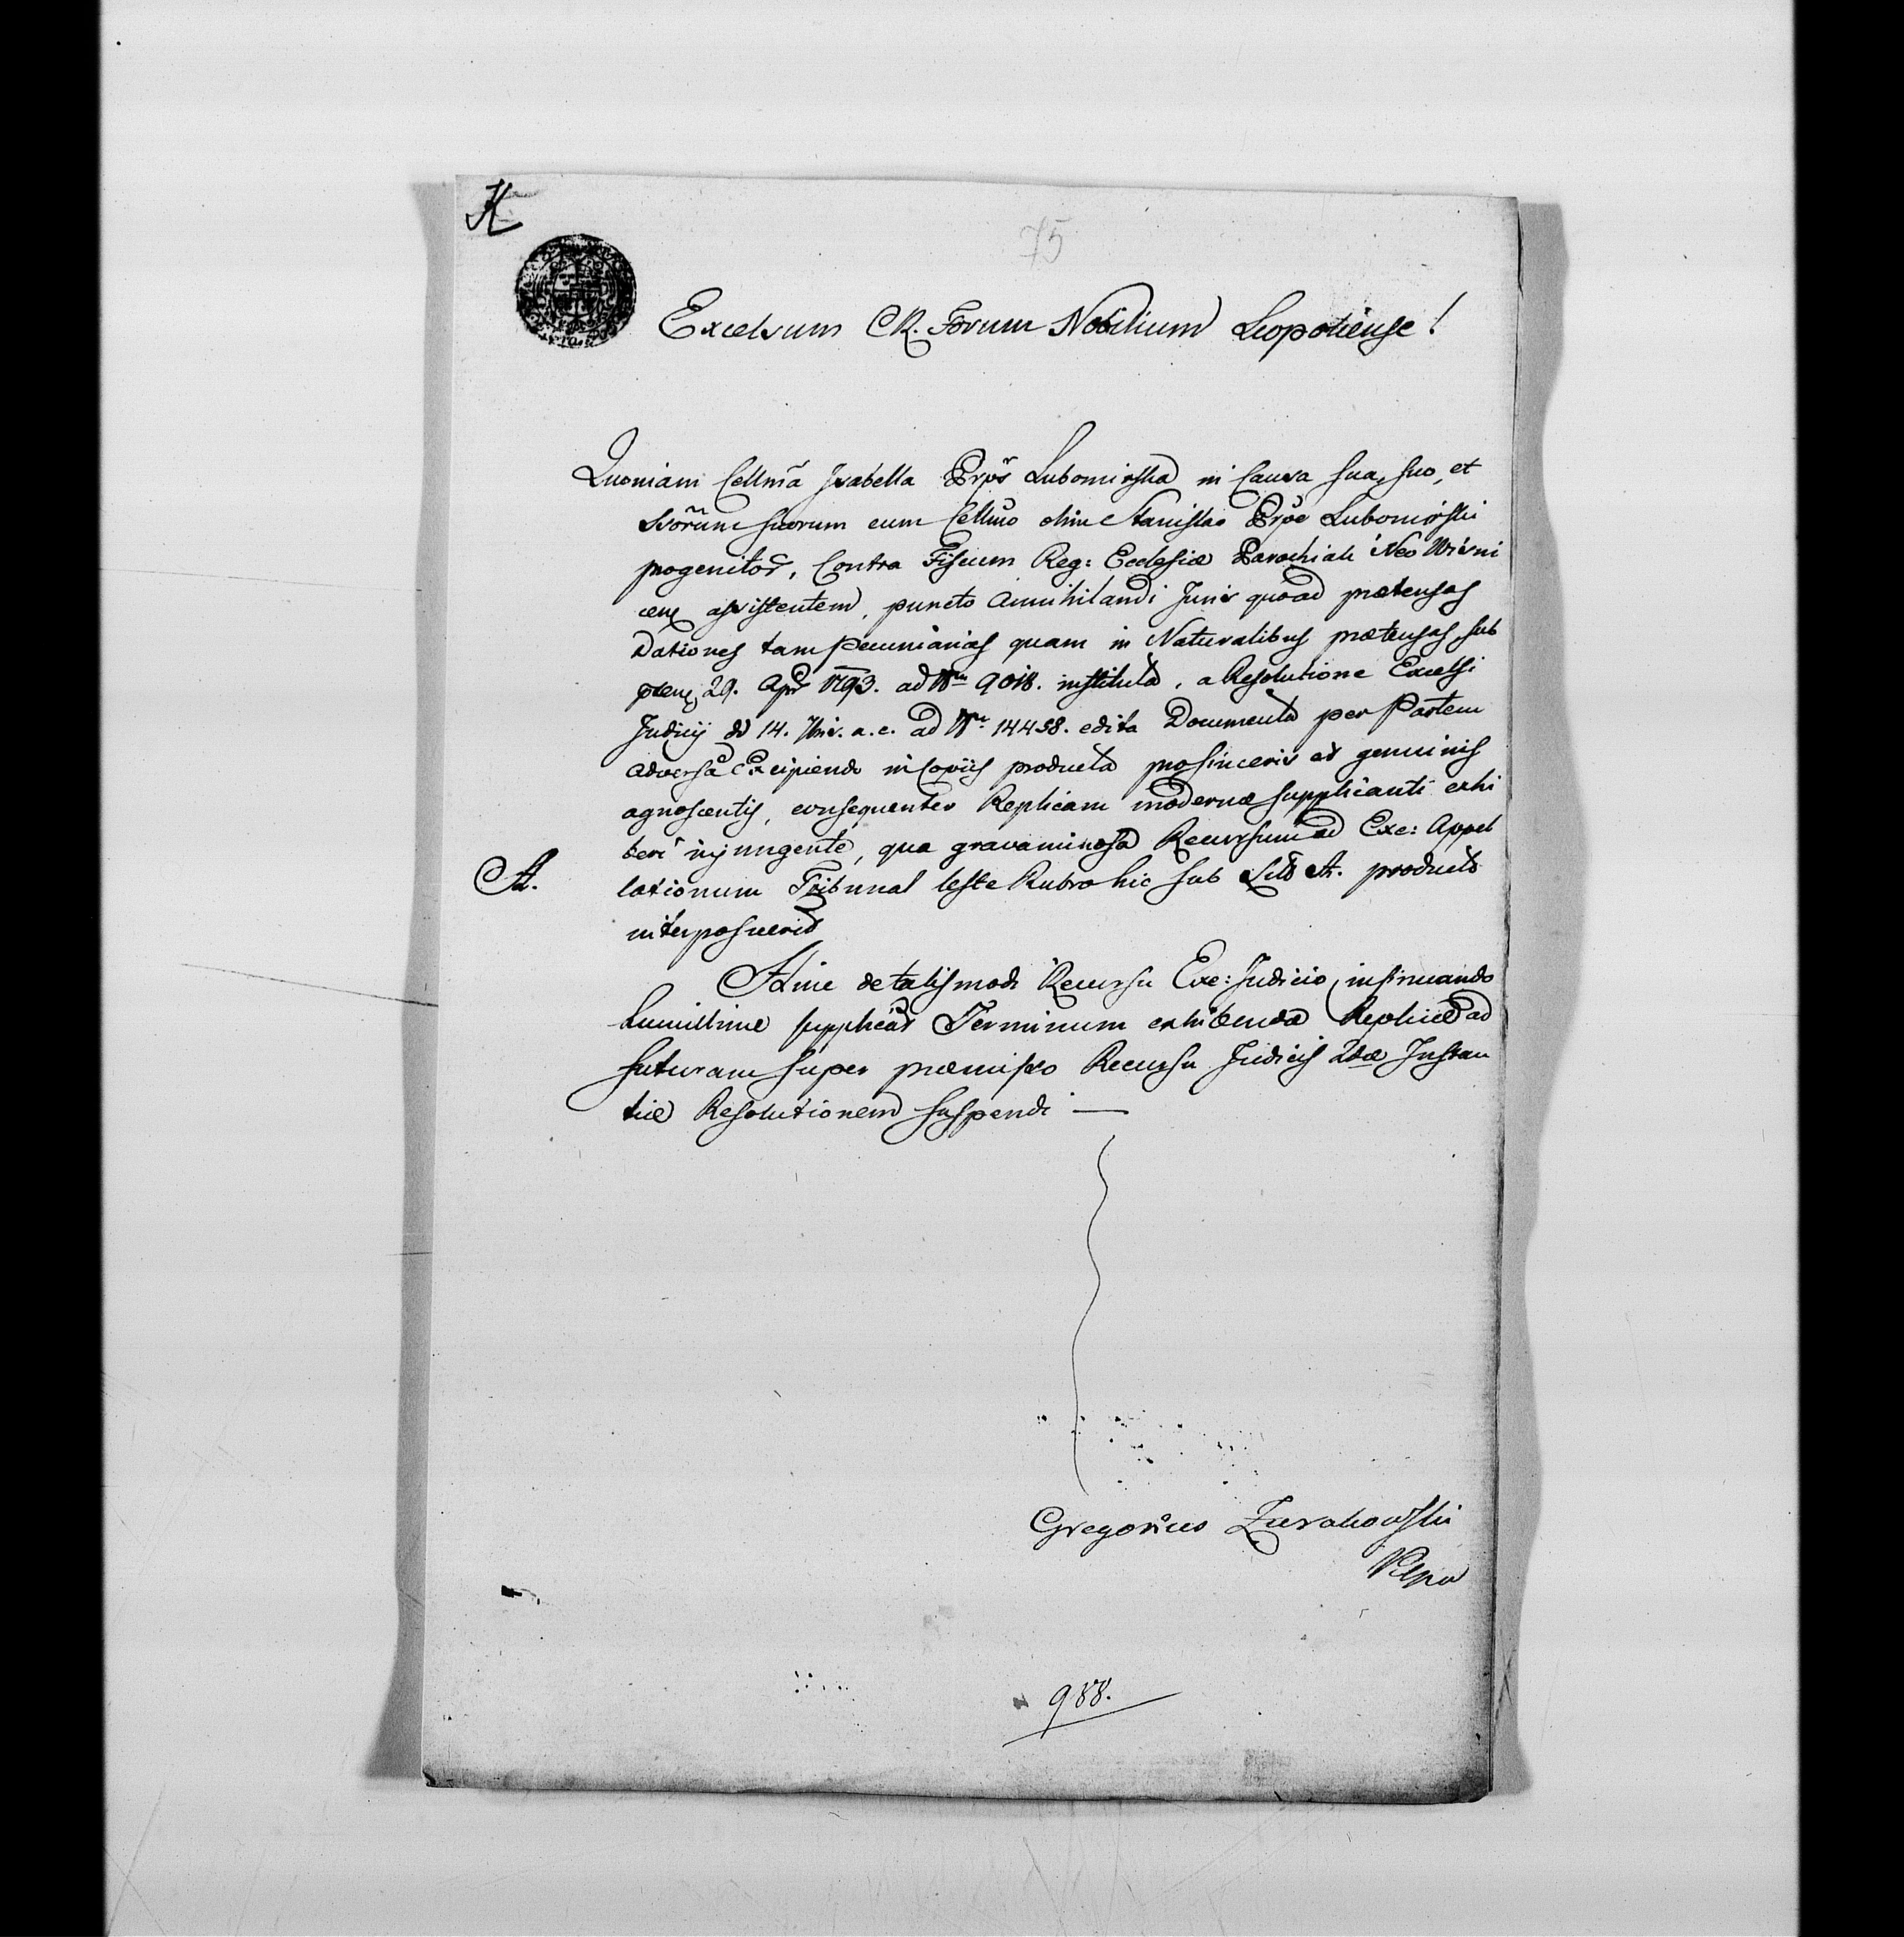 K
75
Excelsum CR. Forum Nobilium Leopoliense!
Quoniam Cellma Isabella Prps Lubomirska in Causa sua, suo, et
Ssorum suorum cum Cellmo olim Stanislao Prpe Lubomirski
progenitor, Contra Fiscum Reg: Ecclesiæ Parochiali Neo Wisni
cen assistentem, puncto Annihilandi Juris quoad prætensas
Dationes tam pecuniarias quam in Naturalibus prætensas, sub
præs 29. Apr 1793. ad Nrm 9018. instituta, a Resolutione Excelsi
Judicij dd 14. 7bris. a. c. ad Nrm 14458. edita Documenta per Partem
adversa Excipiendo in Copiis producta pro sinceris et genuinis
agnoscentis, consequenter Replicam modernæ supplicanti exhi
beri injungente, qua gravaminosa Recursum ad Exc: Appel
A. lationum Tribunal teste Rubro hic sub Lit A. producto
interposuerit
Hinc de talismodi Recursu Exc: Judicio insinuando
humillime supplicat Terminum exhibendæ Replicæ ad
futuram super præmisso Recursu Judicij 2dæ Instan
tiæ Resolutionem suspendi —
Gregorius Zurakowski
988.